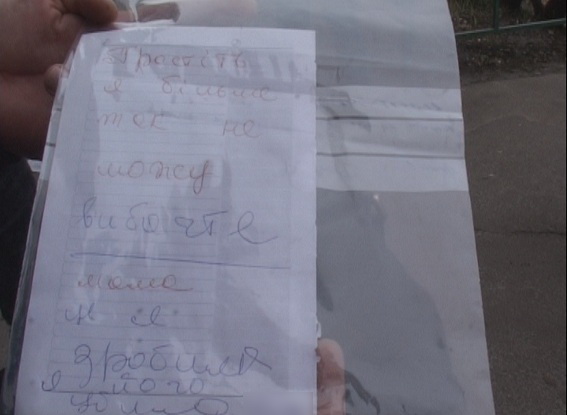 Простіть
я більше
так не
можу
вибачте
мама
не я
зробила
я його